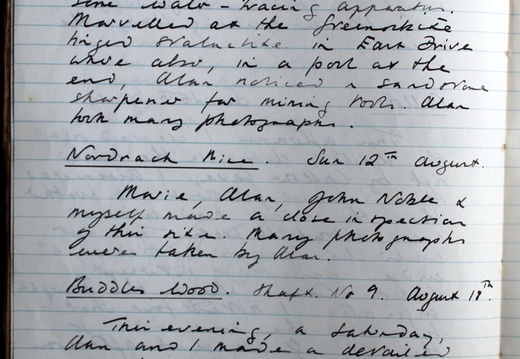 some water-tracing apparatus.
Marvelled at the Greenockite
tinged stalactite in East Drive
where also, in a pool at the
end, Alan noticed a sandstone
sharpener for mining tools. Alan
took many photographs.
Nordrach Mine. Sun 12th August.
Marie, Alan, John Noble &
myself made a close inspection
of this site. Many photographs
were taken by Alan.
Buddles Wood. Shaft. No 9. August 18th.
This evening, a Saturday,
Alan and I made a detailed